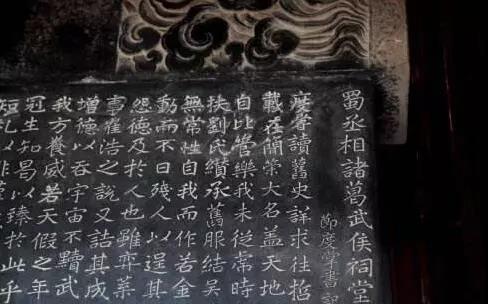 蜀丞相諸葛武侯祠堂
節度掌書記
度嘗讀舊史詳求往哲
載在簡策大名蓋天地
自比管樂我未從常時
扶劉氏纘承舊服結吳
無常性自我而作若金
動而不曰殘人以逞其
怨德及於人也雖弈葉
書崔浩之說又詰其成
增德以吞宇宙不黷武
我方養威若天假之年
冠生知曷以臻於此乎
短